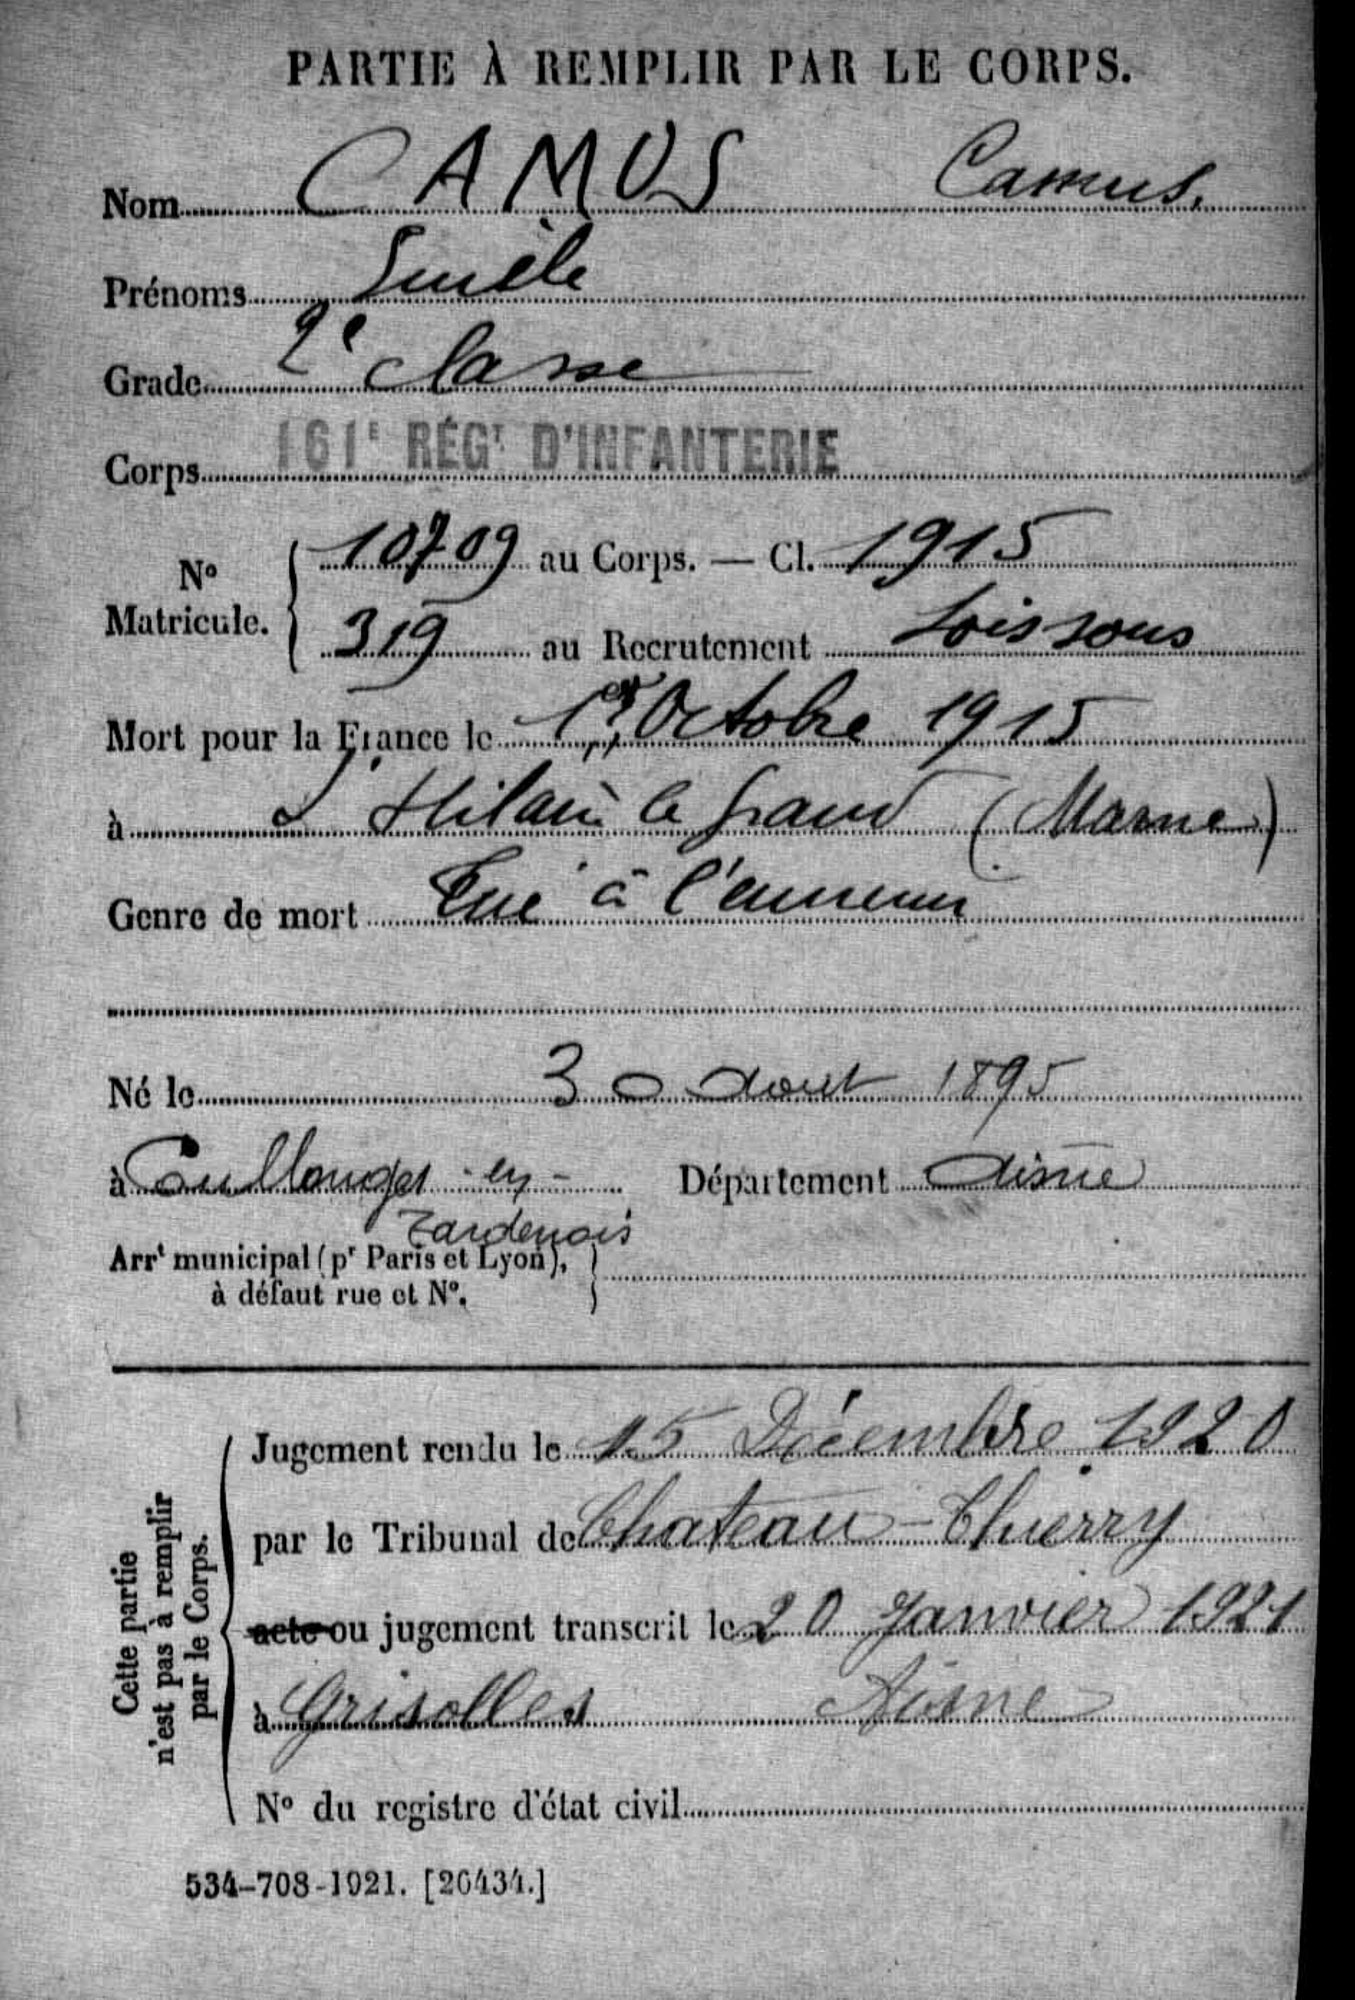 PARTIE À REMPLIR PAR LE CORPS.
Nom CAMUS Camus.
Prénoms Émile
Grade 2e classe
Corps 161e RÉGT D'INFANTERIE
No Matricule. { 10709 au Corps. — Cl. 1915
319 au Recrutement Soissons
Mort pour la France le 1er Octobre 1915
à St Hilaire le Grand (Marne)
Genre de mort Tué à l'ennemi
Né le 30 Aout 1895
à Coullonges-en- Département Aisne
Tardenois
Arrt municipal (pr Paris et Lyon), }
à défaut rue et No.
Cette partie
n'est pas à remplir
par le Corps.
Jugement rendu le 15 Décembre 1920
par le Tribunal de Chateau-Thierry
acte ou jugement transcrit le 20 Janvier 1921
à Grisolles Aisne
No du registre d'état civil
534-708-1921. [26434.]